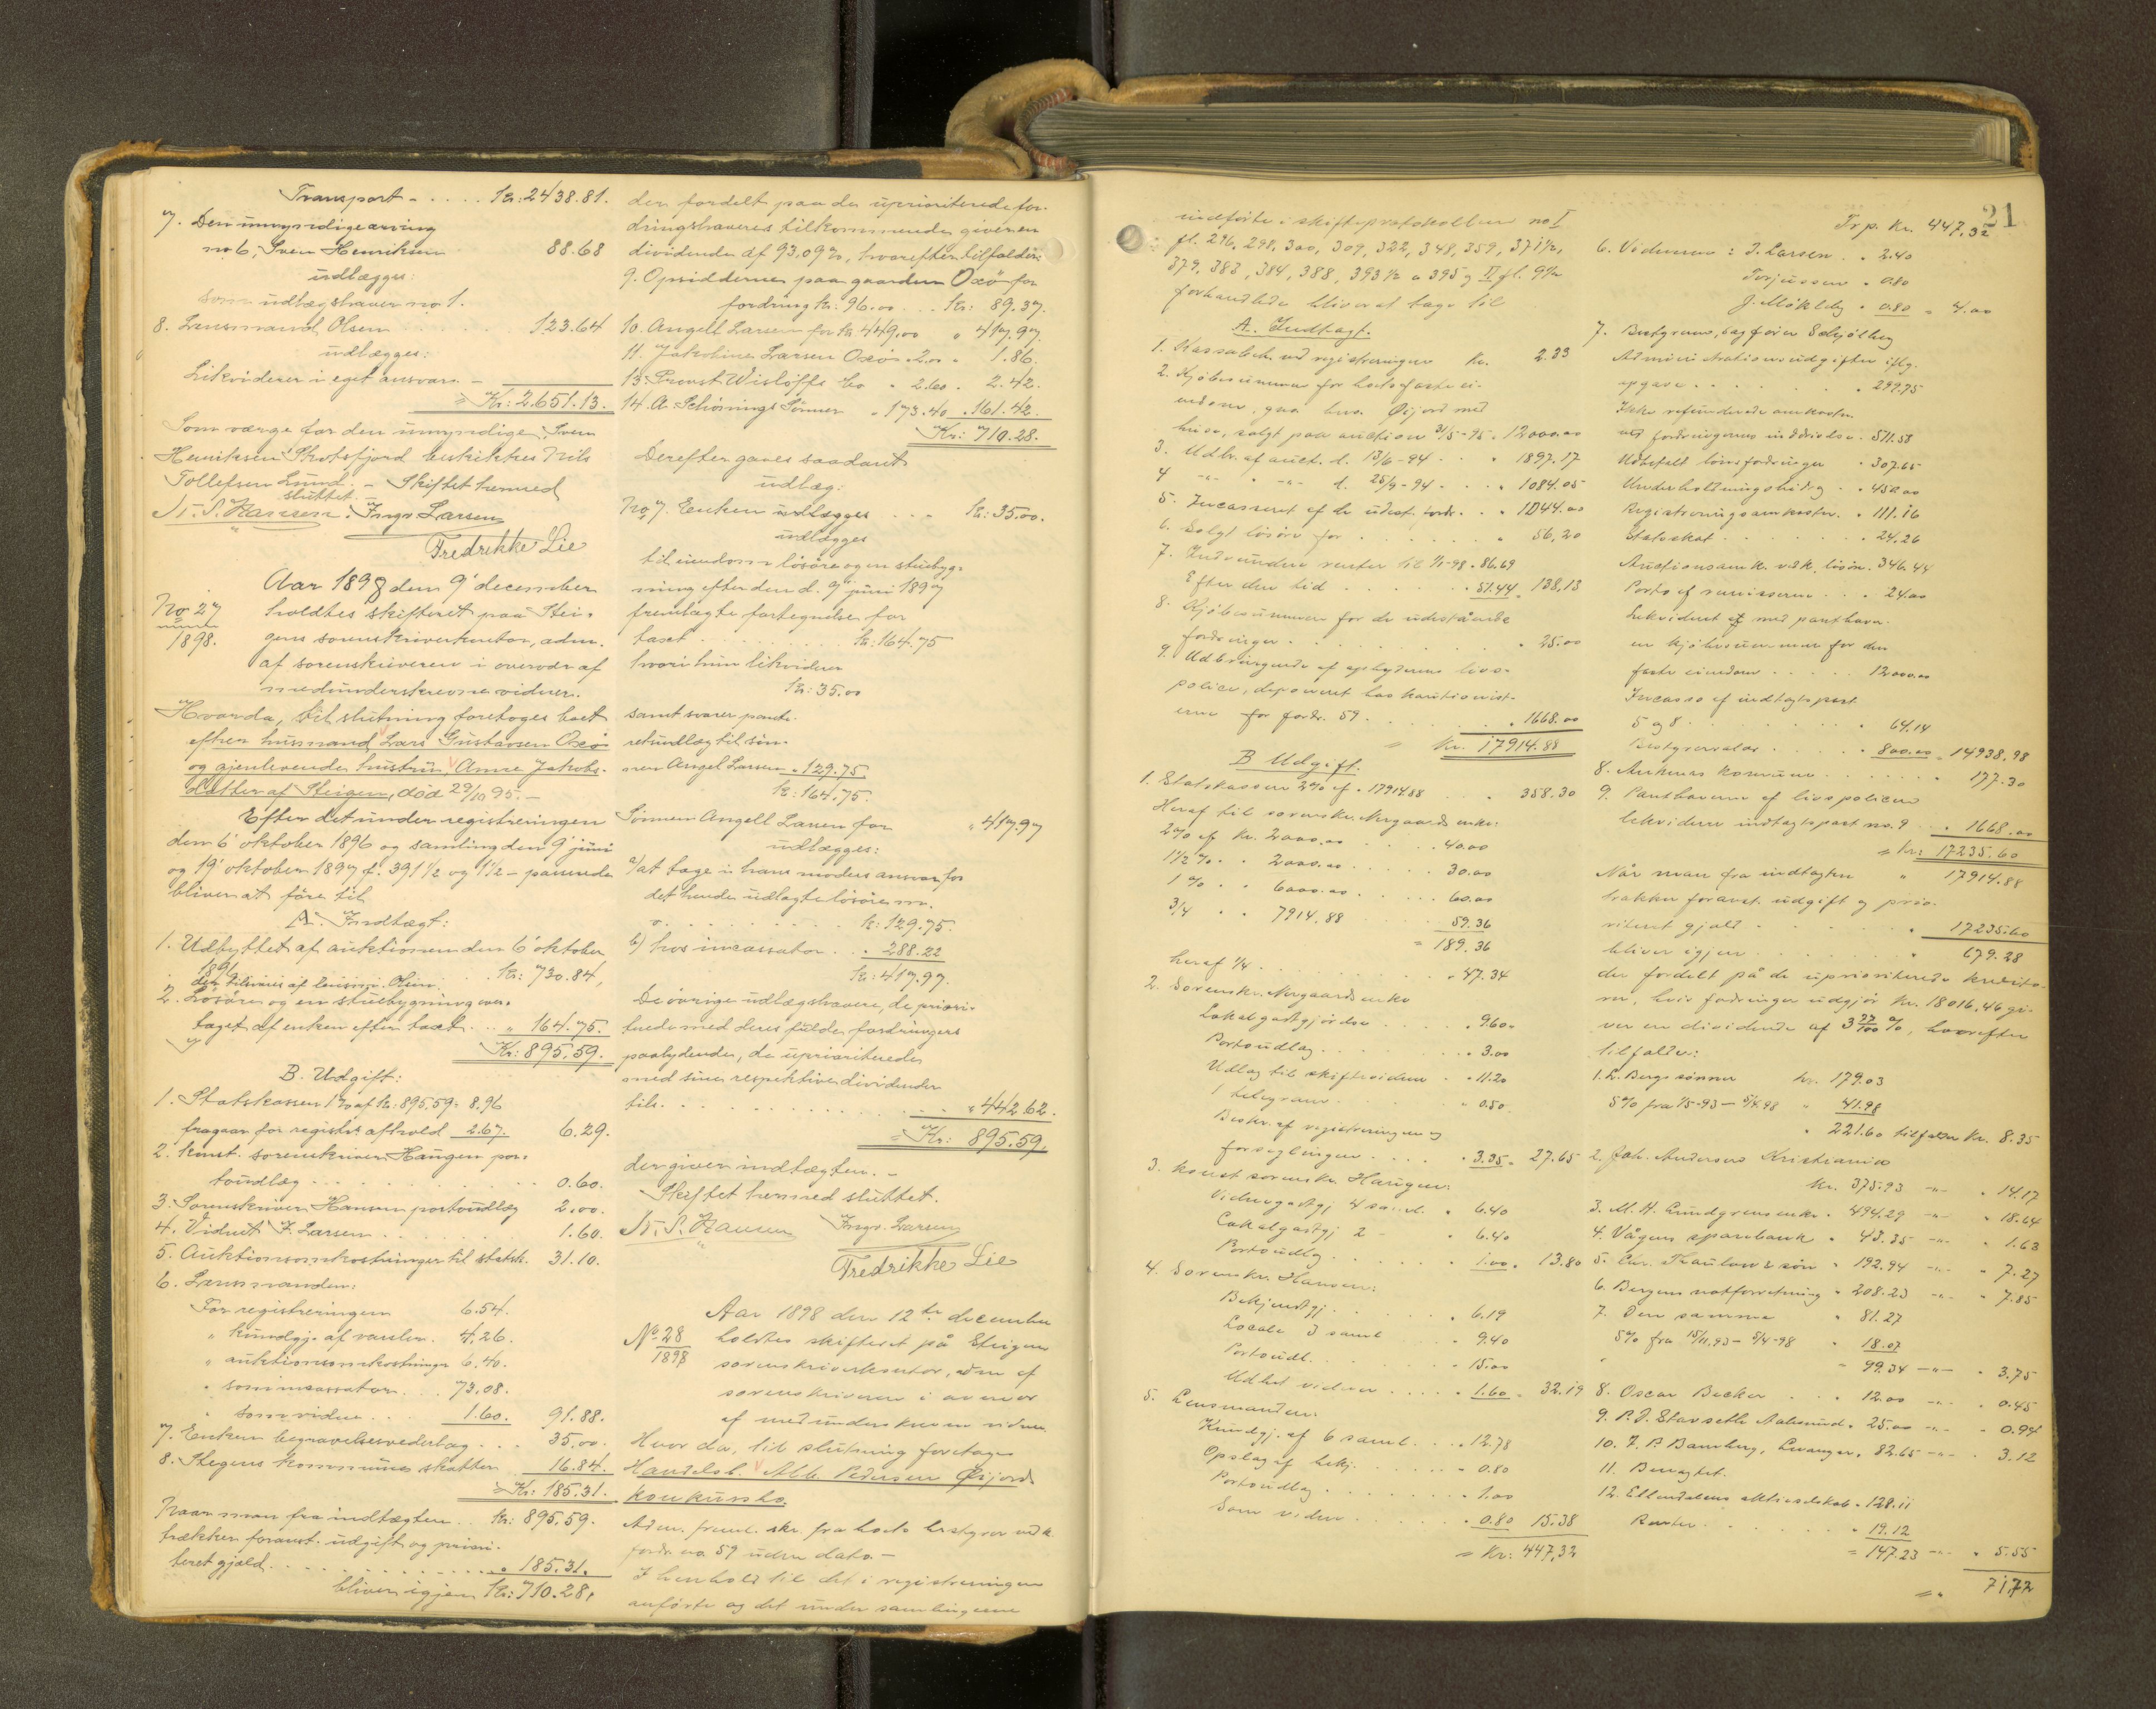 Transport - . . . . Kr: 2438.81.
7. Den umyndige arving
no 6, Sven Henriksen 88.68
udlægges:
som udlægshaver no 1.
8. Lensmand Olsen . . . . . 123.64
udlægges:
Likviderer i eget ansvar. -
= Kr: 2651.13.
Som værge for den umyndige Sven
Henriksen Skotsfjord beskikkes Nils
Tollefsen Lund. - Skiftet hermed
sluttet. -
N. S. Hansen. Ingv. Larsen
Fredrikke Lie
Aar 1898 den 9' december
No 27
1898.
holdtes skifteret paa Stei-
gens sorenskriverkontor, adm.
af sorenskriveren i overvær af
medunderskrevne vidner.
Hvorda, til slutning foretoges boet
efter husmand Lars Gustavsen Oxsö
og gjenlevende hustru Anne Jakobs-
datter af Steigen, död 29/10 95. -
Efter det under registreringen
den 6' oktober 1896 og samling den 9' juni
og 19' oktober 1897 f. 391 1/2 og 1 1/2 - passerede
bliver at före til
A. Indtægt:
1. Udbyttet af auktionen den 6' oktober
1896
den tilsvares af lensm. Olsen . . Kr: 730.84,
2. Lösöre og en stuebygning over-
taget af enken efter taxt . . . " 164.75.
Kr: 895.59.
B. Udgift:
1. Statskassen 1% af Kr: 895.59 = 8.96
fragaar for registr. afhold 2.67. 6.29.
2. Konst. sorenskriver Haugen por-
toudlæg . . . . . . . . 0.60.
3. Sorenskriver Hansen portoudlæg 2.00.
4. Vidnet I. Larsen . . . . . 1.60.
5. Auktionsomkostninger til statsk. 31.10.
6. Lensmanden:
For registreringen 6.54.
" kundgj. af varsler. 4.26.
" auktionsomkostninger 6.40.
" som incassator . . . 73.08.
" som vidne . . . 1.60. 91.88.
7. Enken begravelsesvederlag . . . 35.00.
8. Stegens kommunes skatter 16.84.
Kr: 185.31.
Naar man fra indtægten . . Kr: 895.59.
trækker foranst. udgift og priori-
teret gjæld . . . . . . . . " 185.31.
bliver igjen Kr: 710.28,
der fordelt paa de uprioriterede for-
dringshaveres tilkommende giver en
dividende af 93.09%, hvorefter tilfalder:
9. Opsidderne paa gaarden Oxsö for
fordring Kr: 96.00 . . . Kr: 89.37.
10. Angell Larsen for Kr 449.00 " 417.97.
11. Jakobine Larsen Oxsö " 2.00 " 1.86.
13. Provst Wislöffs bo " 2.60 . 2.42.
14. A. Schönings Sönner " 173.40 . 161.42.
Kr: 710.28.
Derefter gaves saadant
udlæg:
No 7. Enken udlægges . . . Kr: 35.00.
udlægges
til eiendom lösöre og en stuebyg-
ning efter den d. 9' juni 1897
fremlagte fortegnelse for
taxt . . . . . Kr: 164.75
hvori hun likviderer
Kr: 35.00
samt svarer pante-
retsudlæg til sön-
nen Angel Larsen " 129.75
Kr: 164.75.
Sönnen Angell Larsen for " 417.97
udlægges:
a) at tage i hans moders ansvar for
det hende udlagte lösöre m.
v. . . . . . . Kr: 129.75.
b) hos incassator . . " 288.22
Kr: 417.97.
De övrige udlægshavere, de priori-
terede med deres fulde fordringers
paalydende, de uprioriterede
med sine respektive dividender
tils. . . . . . . . . . . " 442.62.
= Kr: 895.59.
der giver indtægten. -
Skiftet hermed sluttet.
N. S. Hansen Ingv. Larsen
Fredrikke Lie
Aar 1898 den 12te december
No. 28
1898
holdtes skifteret på Steigens
sorenskriverkontor, adm. af
sorenskriveren i overvær
af medunderskrevne vidner.
Hvor da, til slutning foretages
Handelsb. Alb. Pedersen Öijords
konkursbo.
Adm. freml. skr. fra boets bestyrer vedk.
fordr. no. 59 uden dato. -
I henhold til det i registreringen
anförte og det under samlingerne
21
indförte i skifteprotokollen no I
fl. 296, 298, 300, 309, 322, 348, 359, 371 1/2,
379, 383, 384, 388, 393 1/2 o 395 og II fl. 9 1/2
forhandlede bliver at tage til
A. Indtægt.
1. Kassabeh. ved registreringen Kr. 2.33
2. Kjöbesummen for boets faste ei-
endom, gna bno Öijord med
huse, solgt paa auction 31/5-95 . 12000.00
3. Udbr. af auct. d. 13/6-94 . . . 1897.17
4 -"- " -"- d. 25/9-94 . . . . 1084.05
5. Incasseret af de udest. fordr. . . 1044.00
6. Solgt lösöre for . . . . . . 56,20
7. Indvundne renter til 1/1-98 . 86.69
Efter den tid . . . . . 51.44 . 138,13
8. Kjöbesummen for de udestående
fordringer . . . . . . . . 25.00
9. Udbringende af opbyderens livs-
police, deponeret hos kautionist-
erne for fordr. 59 . . . . . . 1668.00
= Kr. 17914.88
B Udgift.
1. Statskassen 2% af . 17914.88 . . . 358.30
Heraf til sorenskr. Nergaards enke:
2% af Kr. 2000.00 . . . . 40.00
1 1/2 % . . 2000.00 . . . . 30.00
1 % . . 6000.00 . . . . . 60.00
3/4 . . 7914.88 . . . . 59.36
= 189.36
heraf 1/4 . . . . . . . . . " 47.34
2. Sorenskr. Nergaards enke
Lokalgodtgjörelse . . . . . 9.60.
Portoudlæg . . . . . . . 3.00
Udlæg til skiftevidner . . 11.20
1 telegram . . . . . . 0.50.
Beskr. af registreringen og
forseglingen . . . . . 3.35 . 27.65
3. Konst sorenskr. Haugen:
Vidnegodtgj 4 saml. . 6.40
Lokalgodtgj 2 - . 6.40
Portoudlg . . . . . . 1.00 . 13.80
4. Sorenskr. Hansen:
Bekjendtgj. . . . . . 6.19
Locale 3 saml . . . 9.40
Portoudl. . . . . . . 15.00
Udbet vidner . . . . . 1.60 . 32.19
5. Lensmanden:
Kundgj. af 6 saml. . . . 12.78
Opslag af bekj. . . . . . 0.80
Portoudlæg . . . . . . . 1.00
Som vidne . . . . . . 0.80 15.38
= Kr: 447,32
Trp. Kr. 447,32
6. Vidnerne: I. Larsen . . 2.40
Torjussen . 0.80
J. Möklebg . 0.80 . 4.00
7. Bestyreren, sagförer Schjölberg
Administrationsudgifter iflg.
opgave . . . . . . . . 299.75
Ikke refunderede omkostn.
ved fordringernes inddrivelse . 571.58
Udbetalt lönsfordringer . 307.65
Underholdningsbidrag . . 450.00
Registreringsomkostn. . 111.16
Statsskat . . . . . . . . 24.26
Auctionsomk. vedk. lösöre . 346.44
Porto af remisserne . . . 24.00
Likvideret af med panthaver-
en kjöbesummen for den
faste eiendom . . . . . 12000.00
Incasso af indtægtspost
5 og 8 . . . . . . . . 64.14
Bestyrersalær . . . . . 800.00 . 14938,98
8. Ankenes kommune . . . . . . . 177.30
9. Panthaverne af livspolicen
likviderer indtægtspost no. 9 . . 1668.00
= Kr: 17235.60
Når man fra indtægten " 17914.88
trækker foranst. udgift og prio-
riteret gjæld . . . . . . . . . 17235.60
bliver igjen . . . . . . . . . 679.28
der fordelt på de uprioriterede kredito-
rer, hvis fordringer udgjör Kr. 18016,46 gi-
ver en dividende af 3 77/100 %, hvorefter
tilfalder:
1. D. Bergs sönner Kr. 179.03
5% fra 1/5-93 - 5/4 98 " 41.98
" 221.60 tilfalder Kr. 8.35
2. Joh. Andersens Kristiania
Kr. 375.93 -"- . 14.17
3. M. H. Lundgrens enke . 494.29 -"- . 18.64
4. Vågens sparebank . 43.35 -"- . 1.63
5. Chr. Thaulow & sön . 192.94 -"- . 7.27
6. Bergens notforretning . 208.23 -"- . 7.85
7. Den samme . 81.27
5% fra 15/11.93 - 5/4-98 . 18.07
" 99.34 -"- . 3.75
8. Oscar Becker . . . 12.00 -"- . 0.45
9. P. I. Stavseth Aalesund . 25.00 -"- . 0.94
10. F. P. Bamberg, Levanger . 82.65 -"- . 3.12
11. Benægtet.
12. Ellendalens aktieselskab . 128.11
Renter . . . . . . . . 19.12
= 147.23 -"- . 5.55
=. 71,72